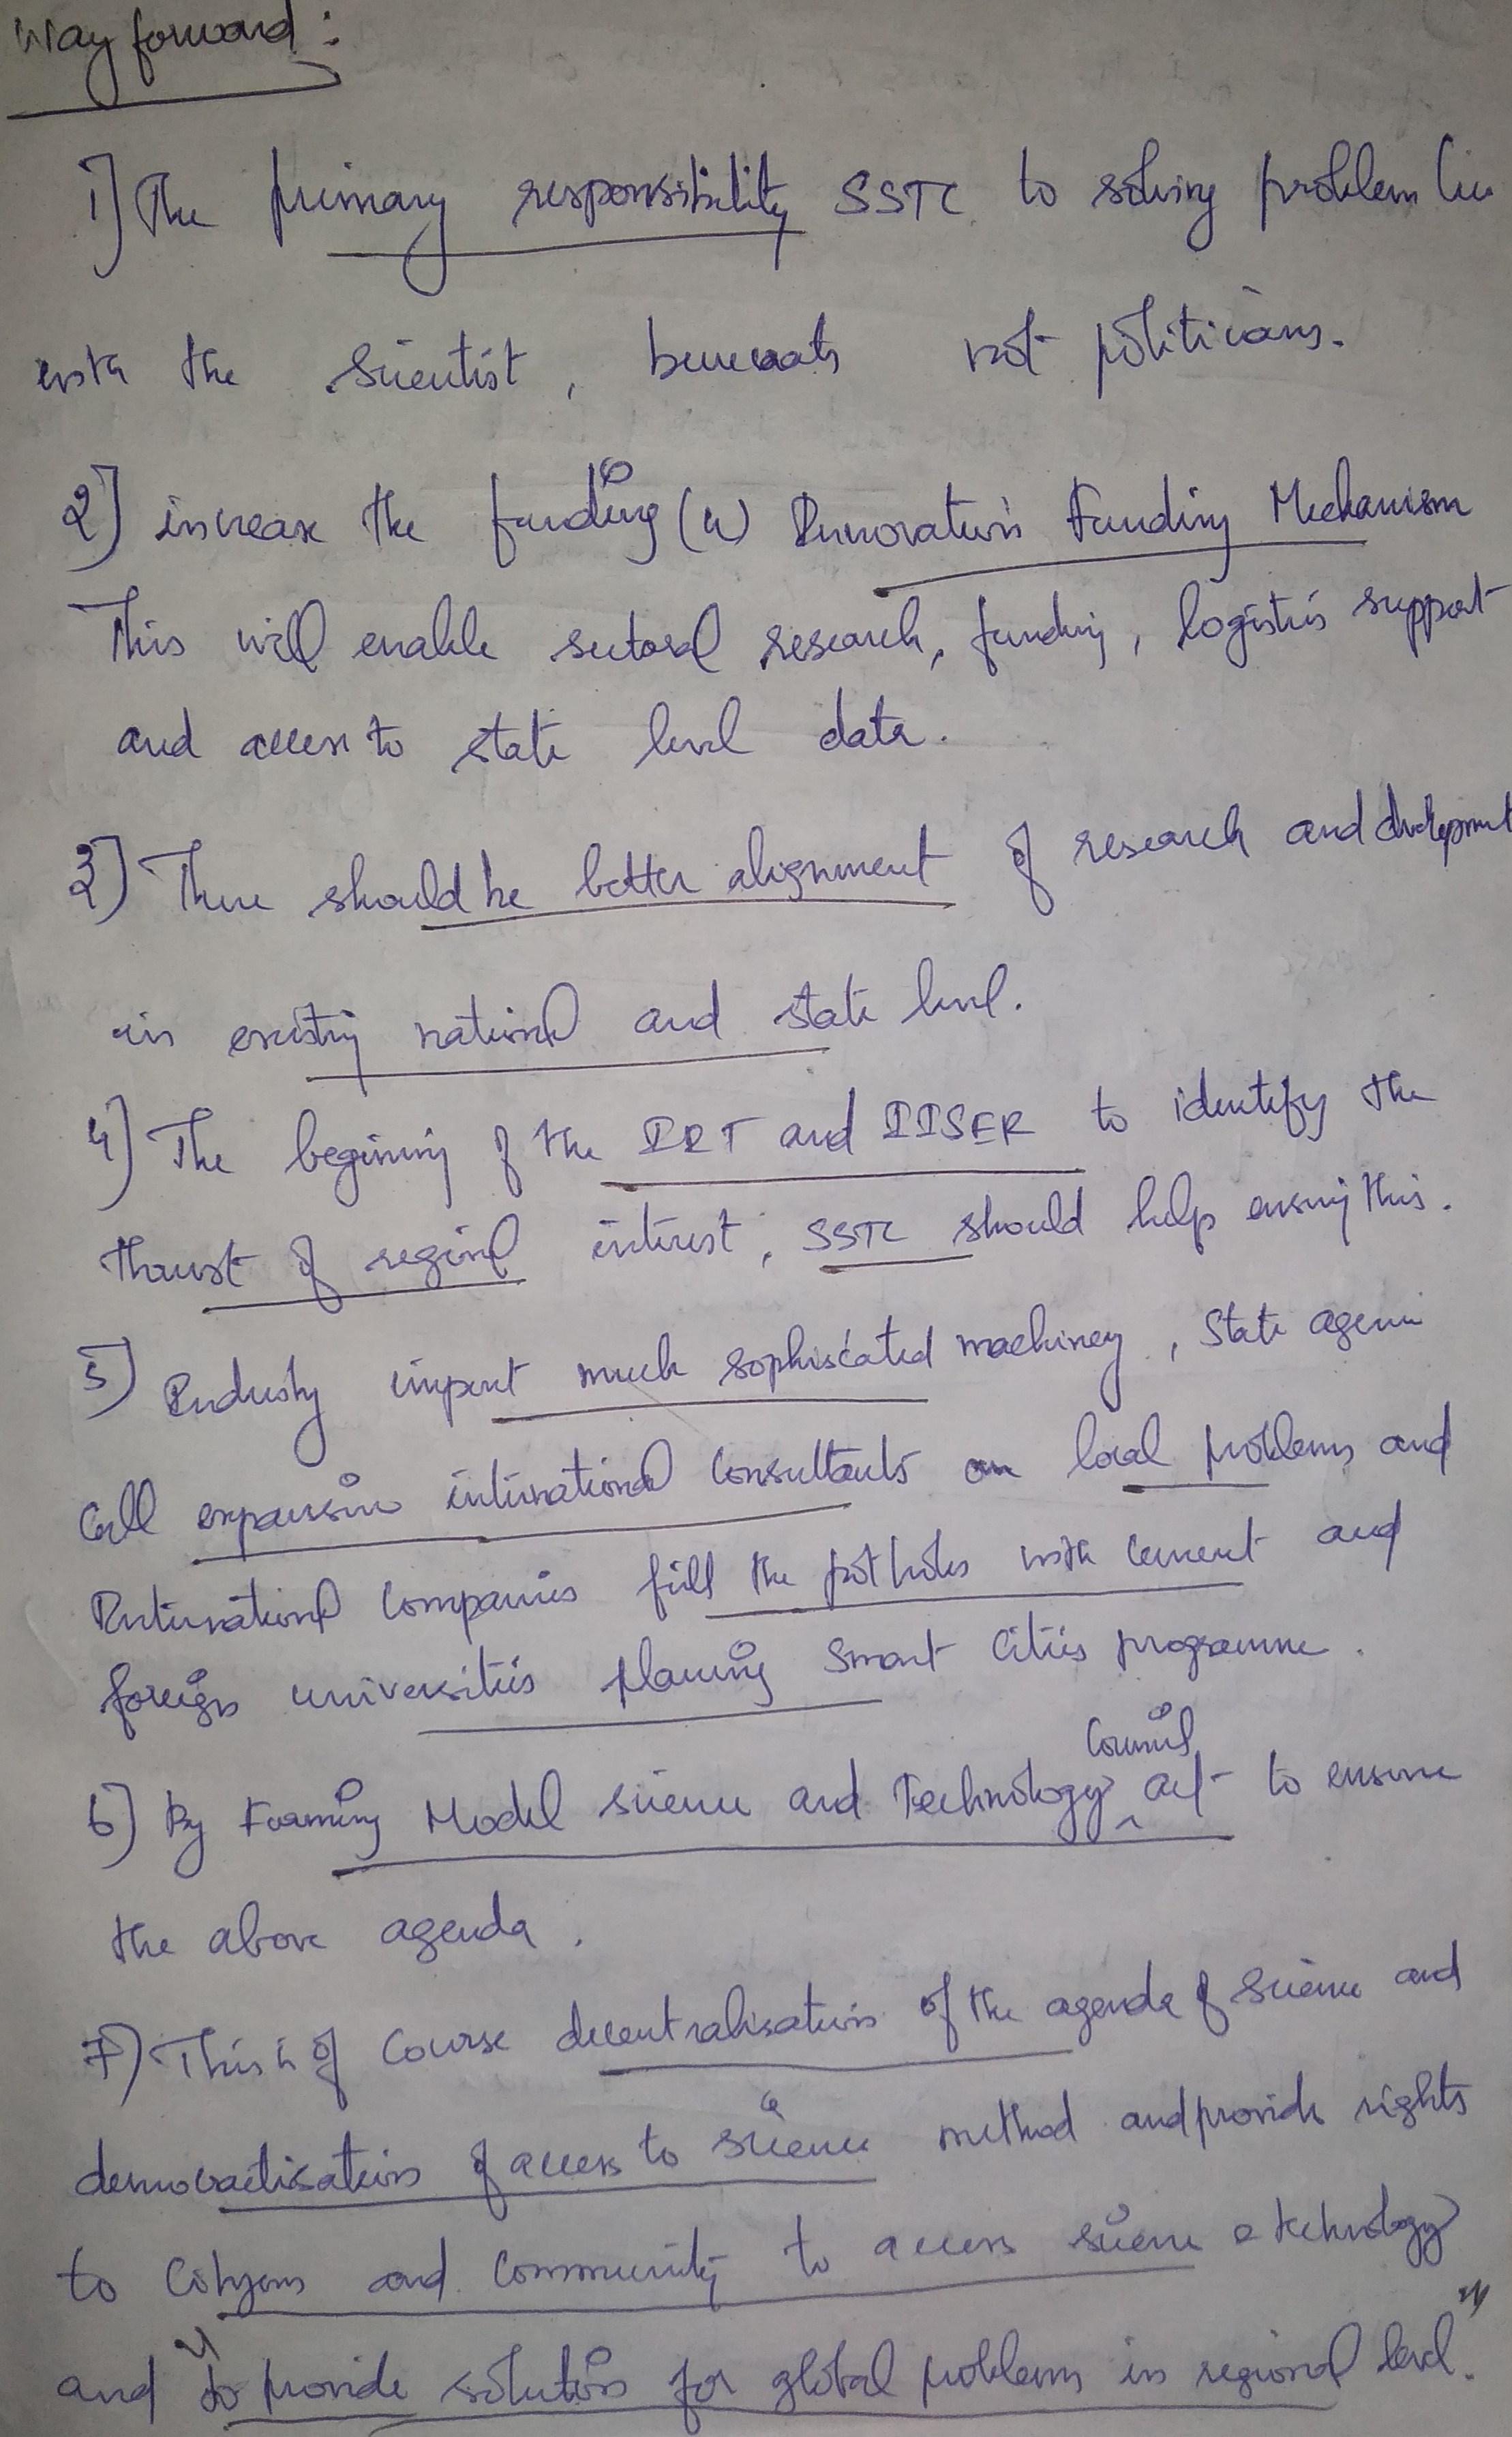 Way forward :
1) The primary responsibility SSTC to solving problem lie
with the scientist, not politicians.
2) increase the funding (4) Innovation Funding Mechanism
This will enable sectoral research, funding, logistics support
and access to state level data.
3) There should be better alignment of research and development
in existing national and state level.
4) The begining of the and IISER to identify the
thrust of regional interest, SSTC should help ensuring this.
5) Industry import much sophiscated machinery, State
call expansive international consultants on local problems and
International Companies fill the potholes with cement and
foreign universities planning Smart Cities programme.
6) By Forming Model science and Technology Council act to ensure
the above agenda.
7) This is of course decentralisation of the agenda of science and
democratisation of access to science method and provide rights
to Citizens and Community to access science & technology
and "to provide solution for global problems in regional level."